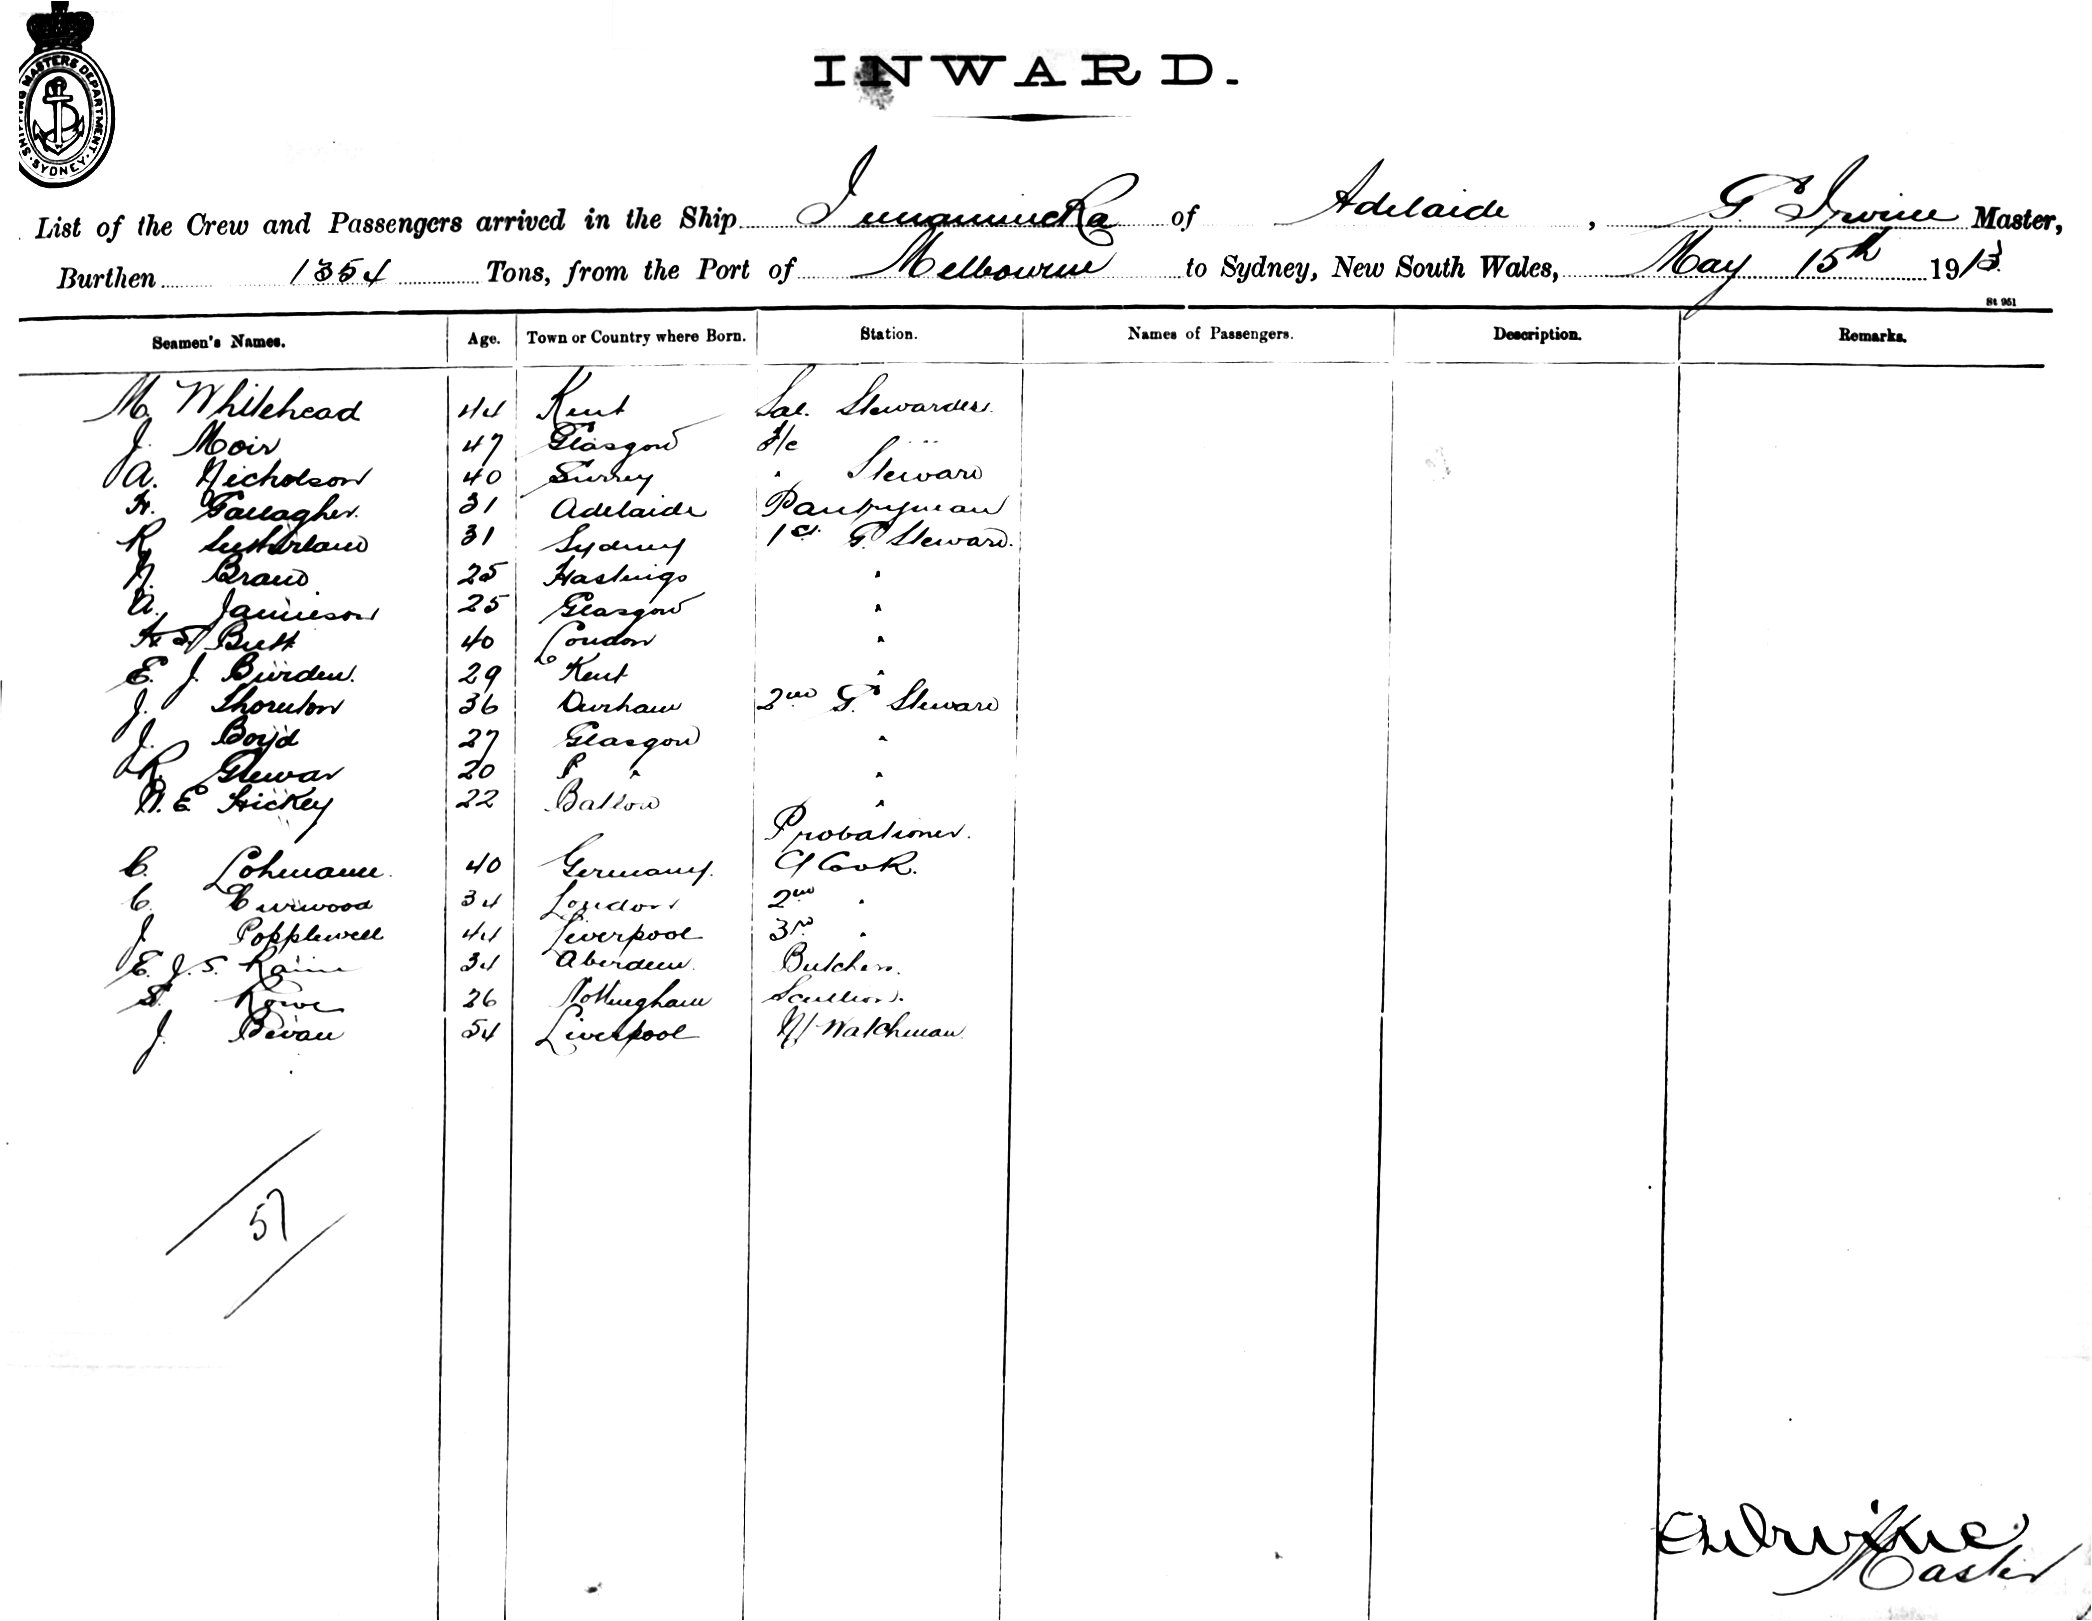 SHIPPING MASTERS DEPARTMENT SYDNEY
INWARD.
List of the Crew and Passengers arrived in the Ship Innamincka of Adelaide, G. Irvine Master,
Burthen 1354 Tons, from the Port of Melbourne to Sydney, New South Wales, May 15th 1913.
St 951
Seamen's Names. Age. Town or Country where Born. Station. Names of Passengers. Description. Remarks.
M. Whitehead 44 Kent Sal. Stewardess.
J. Moir 47 Glasgow "
A. Nicholson 40 Surrey " Steward
H. Gallagher 31 Adelaide Pantryman
R. Sutherland 31 Sydney 1st G. Steward.
N. Brand 25 Hastings "
A. Jamieson 25 Glasgow "
Butt 40 London "
E. J. Burden. 29 Kent "
J. Thornton 36 Durham 2nd G. Steward
J. Boyd 27 Glasgow "
R. 20 " "
N. E. Hickey 22 "
Probationer.
C. Lohmann. 40 Germany. C/ Cook.
C. Curwood 34 London 2nd "
J. Popplewell 44 Liverpool 3rd "
E. J. S. 34 Aberdeen. Butcher.
S. Rowe 26 Nottingham Scullion.
J. Bevan 54 Liverpool N/ Watchman
57
Irvine
Master